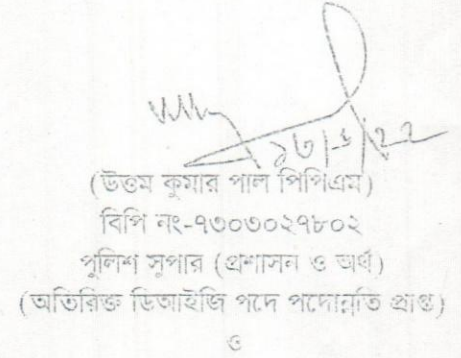 (উত্তম কুমার পাল পিপিএম)
বিপি নং-৭৩০৩০২৭৮০২
পুলিশ সুপার (প্রশাসন ও অর্থ)
(অতিরিক্ত ডিআইজি পদে পদোন্নতি প্রাপ্ত)
ও